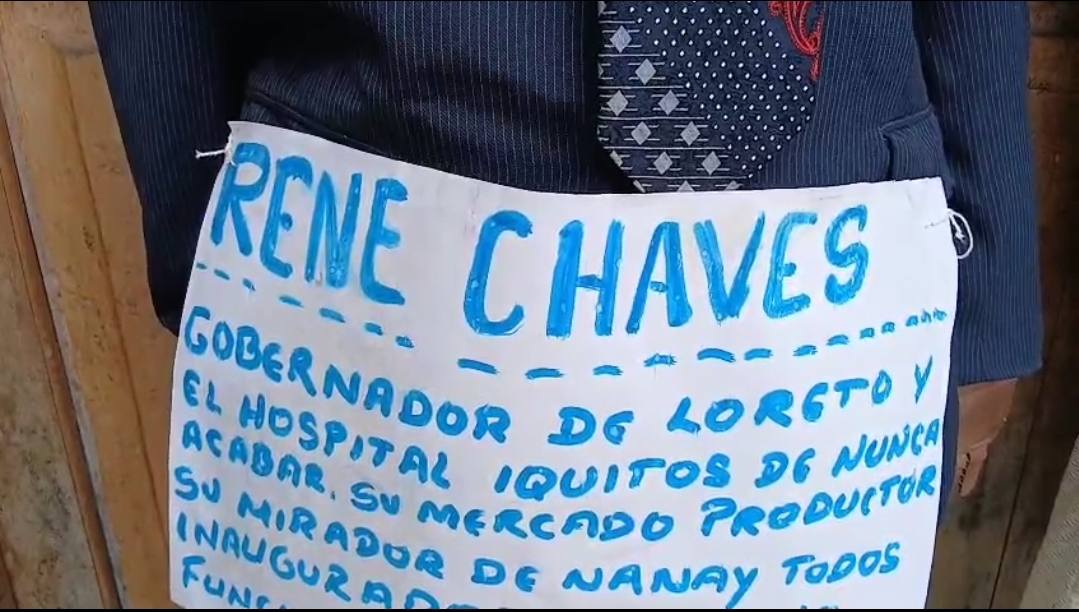 RENE CHAVES
GOBERNADOR DE LORETO Y
EL HOSPITAL IQUITOS DE NUNCA
ACABAR. SU MERCADO PRODUCTOR
SU MIRADOR DE NANAY TODOS